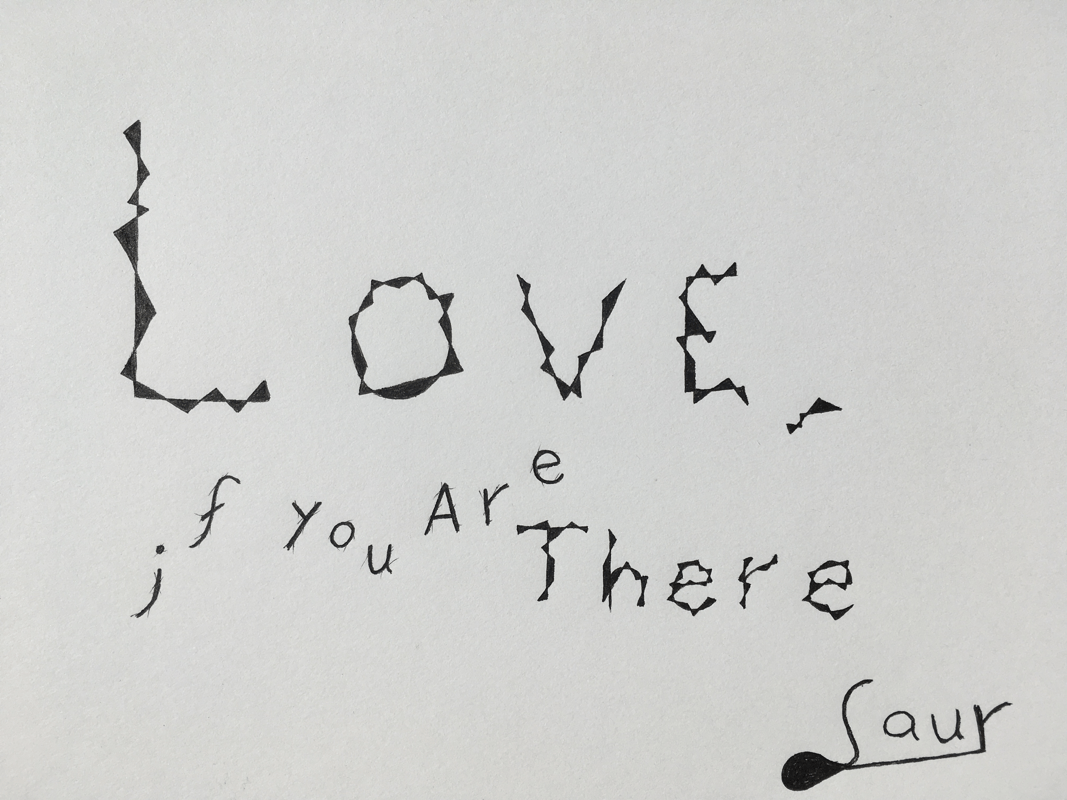 Love,
if you Are There
Saur